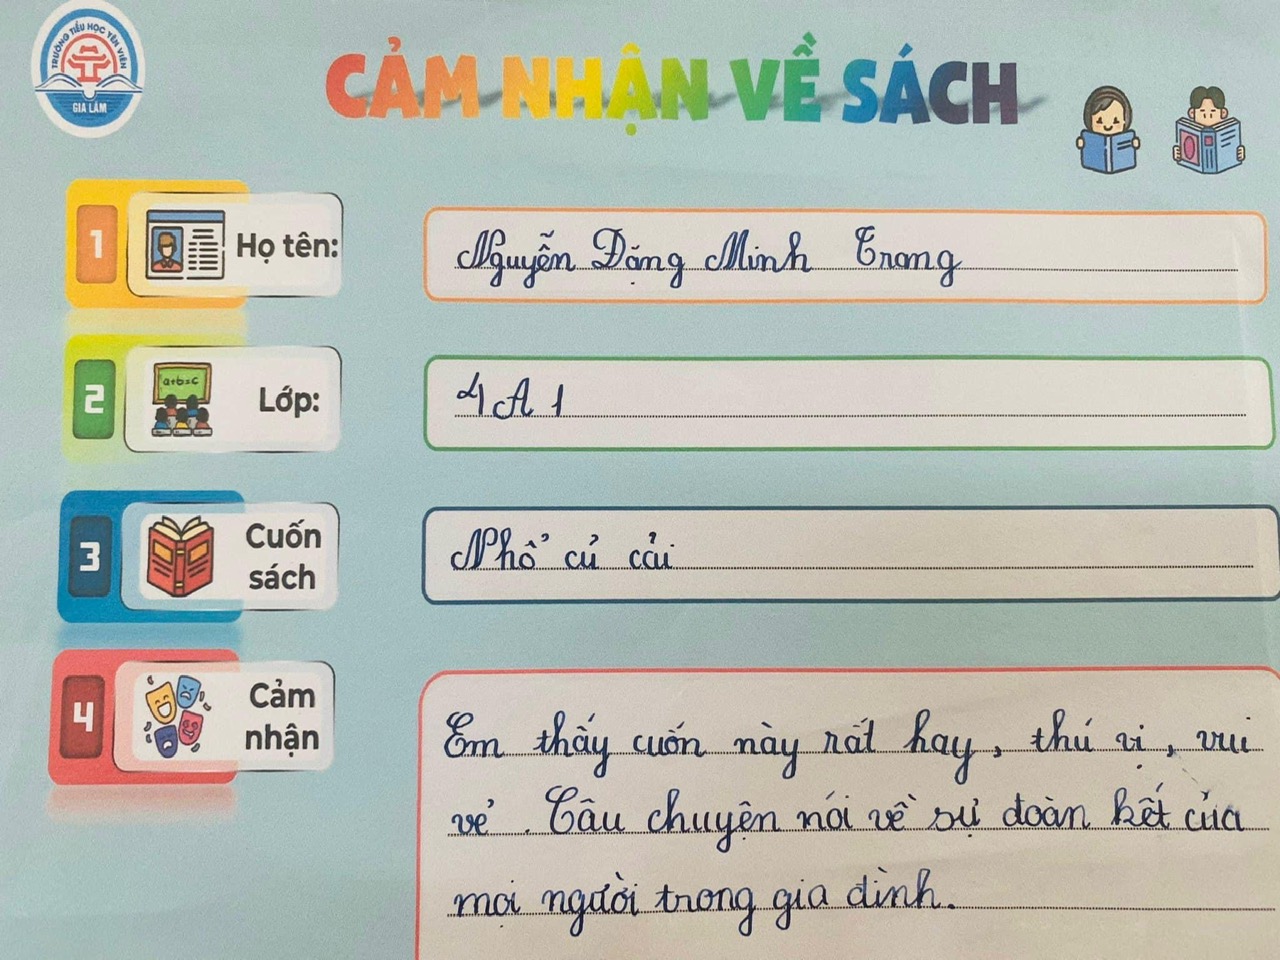 TRƯỜNG TIỂU HỌC YÊN VIÊN
GIA LÂM
CẢM NHẬN VỀ SÁCH
1 Họ tên: Nguyễn Đặng Minh Trang
a+b=c
2 Lớp: 4A1
3 Cuốn sách Nhổ củ cải
4 Cảm nhận
Em thấy cuốn này rất hay, thú vị, vui
vẻ. Câu chuyện nói về sự đoàn kết của
mọi người trong gia đình.